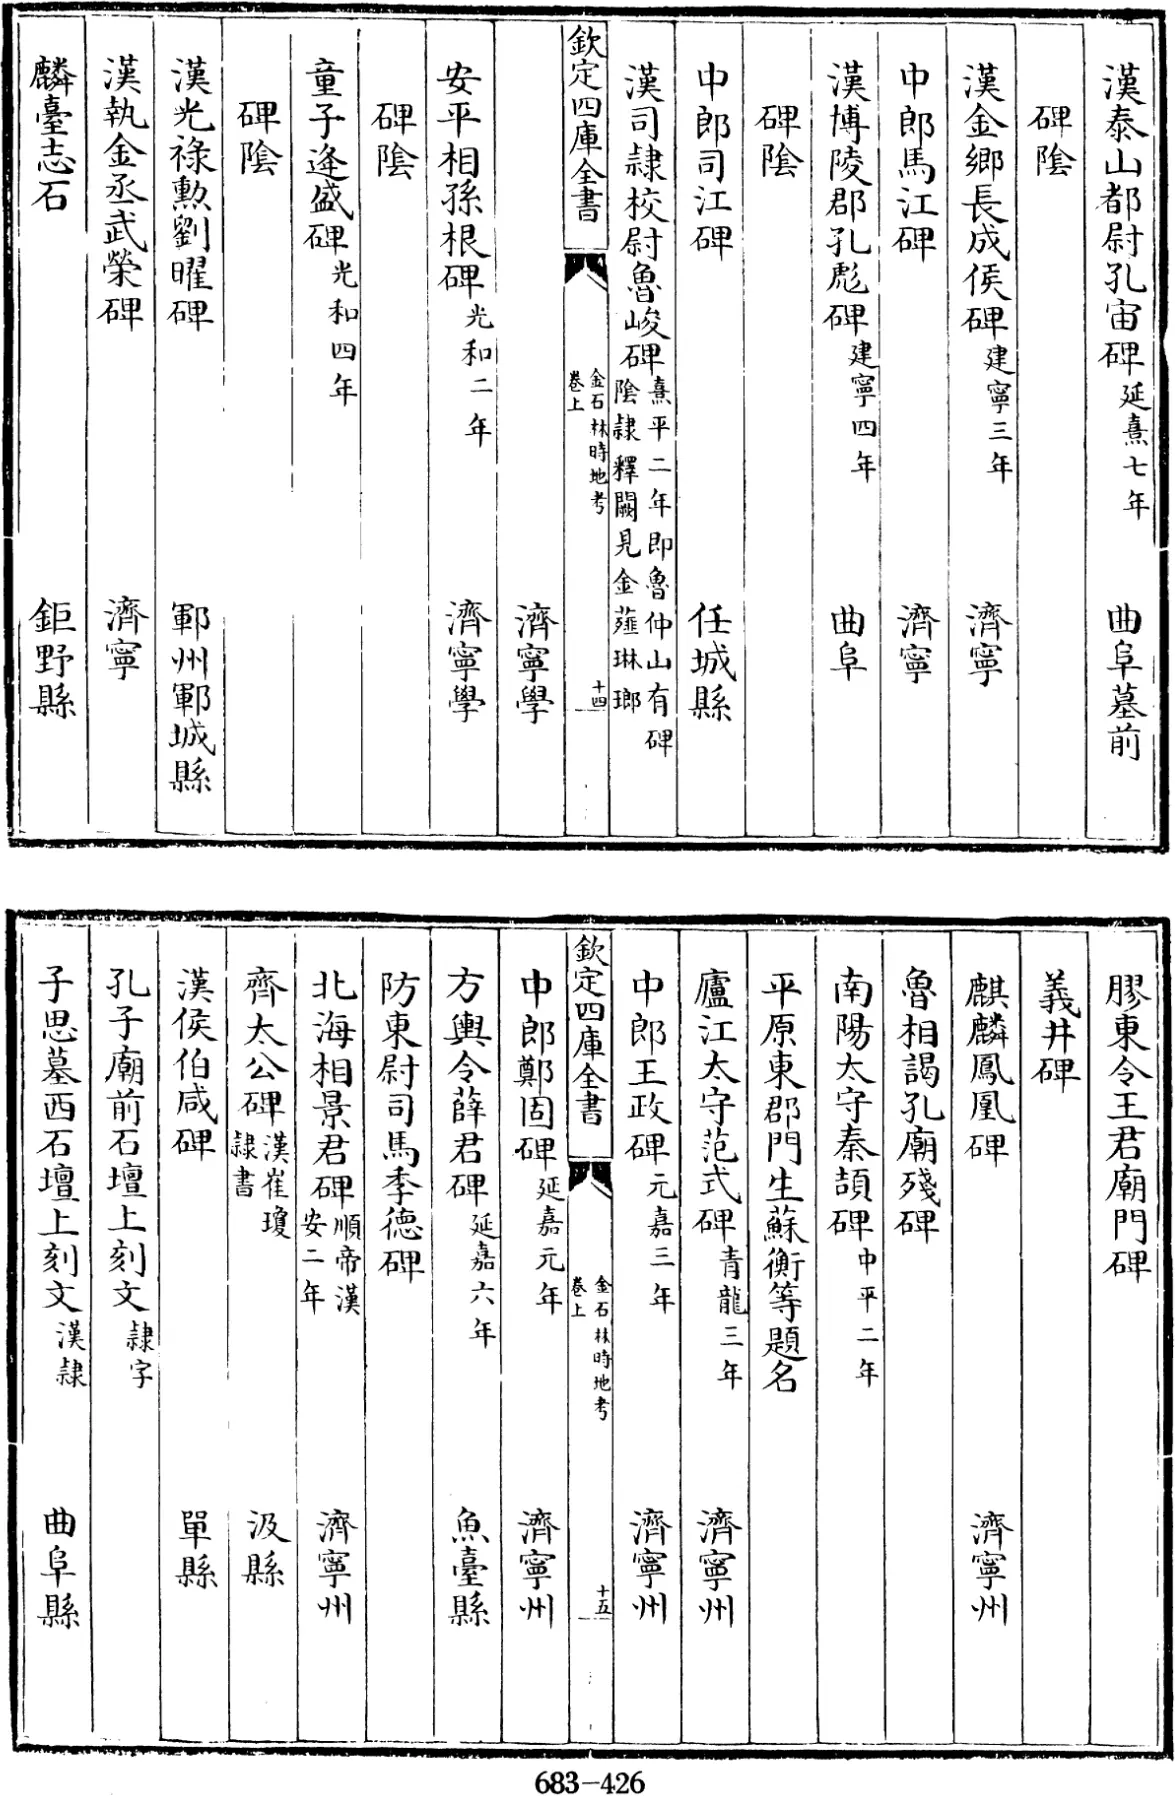 漢泰山都尉孔宙碑延熹七年 曲阜墓前
碑陰
漢金鄉長成侯碑建寧三年 濟寧
中郎馬江碑 濟寧
漢博陵郡孔彪碑建寧四年 曲阜
碑陰
中郎司江碑 任城縣
漢司隷校尉魯峻碑熹平二年即魯仲山有碑
陰隷釋闕見金薤琳瑯
欽定四庫全書
金石林時地考
卷上
十四
濟寧學
安平相孫根碑光和二年 濟寧學
碑陰
童子逄盛碑光和四年
碑陰
漢光祿勲劉曜碑 鄆州鄆城縣
漢執金丞武榮碑 濟寧
麟臺志石 鉅野縣
膠東令王君廟門碑
義井碑
麒麟鳳凰碑 濟寧州
魯相謁孔廟殘碑
南陽太守秦頡碑中平二年
平原東郡門生蘇衡等題名
廬江太守范式碑青龍三年 濟寧州
中郎王政碑元嘉三年 濟寧州
欽定四庫全書
金石林時地考
卷上
十五
中郎鄭固碑延嘉元年 濟寧州
方輿令薛君碑延嘉六年 魚臺縣
防東尉司馬季德碑
北海相景君碑順帝漢
安二年 濟寧州
齊太公碑漢崔瓊
隷書 汲縣
漢侯伯咸碑 單縣
孔子廟前石壇上刻文隷字
子思墓西石壇上刻文漢隷 曲阜縣
683-426